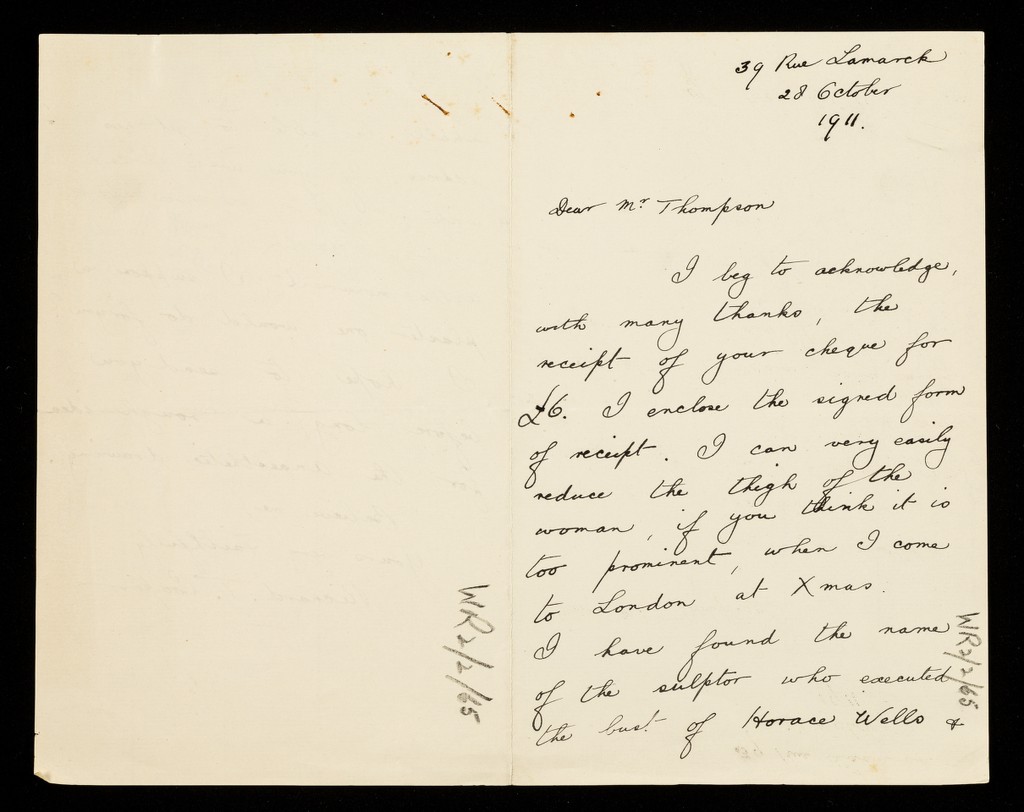 39 Rue Lamarck
28 October
1911.
Dear Mr Thompson
I beg to acknowledge,
with many thanks, the
receipt of your cheque for
£6. I enclose the signed form
of receipt. I can very easily
reduce the thigh of the
woman, if you think it is
too prominent, when I come
to London at Xmas.
I have found the name
of the sulptor who executed
the bust of Horace Wells &
WR2/2/65
WR2/2/65